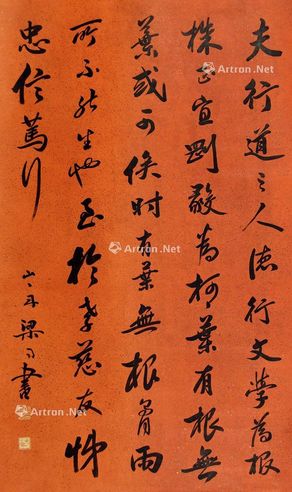 夫行道之人德行文學為根
株正直剛毅為柯葉有根無
葉或可俟時有葉無根膏雨
所不能生也至於孝慈友悌
忠信篤行
山舟梁同書
Artron.Net
Artron.Net
Artron.Net
Artron.Net
Artron.Net